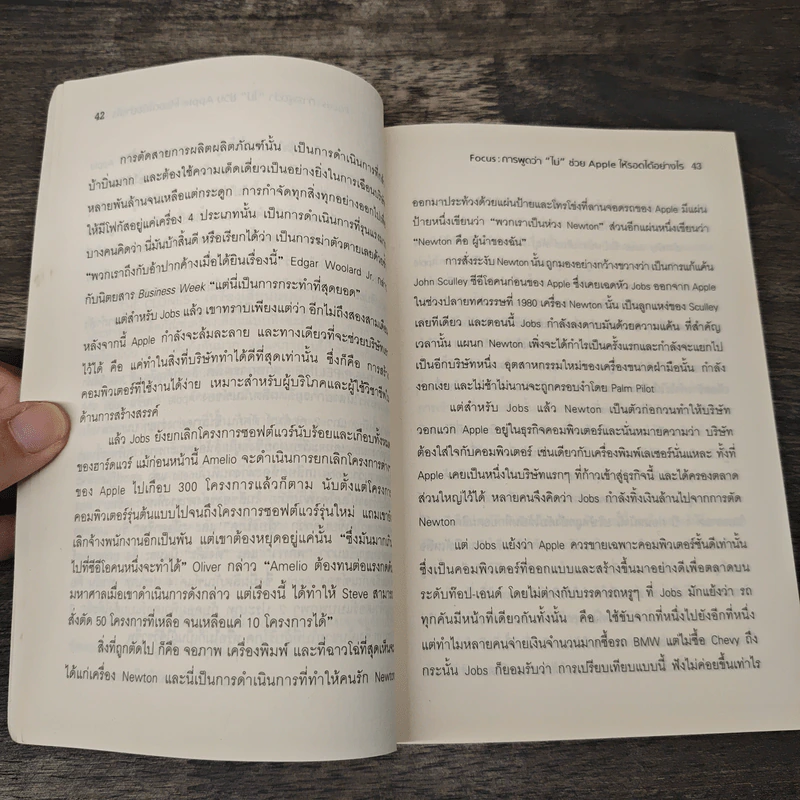 42
การตัดสายการผลิตผลิตภัณฑ์นั้น เป็นการดำเนินการที่
บ้าบิ่นมาก และต้องใช้ความเด็ดเดี่ยวเป็นอย่างยิ่งในการเฉือน
หลายพันล้านจนเหลือแต่กระดูก การกำจัดทุกสิ่งทุกอย่างออกไป
ให้มีโฟกัสอยู่แค่เครื่อง 4 ประเภทนั้น เป็นการดำเนินการที่รุนแรง
บางคนคิดว่า นี่มันบ้าสิ้นดี หรือเรียกได้ว่า เป็นการฆ่าตัวตายเลย
“พวกเราถึงกับอ้าปากค้างเมื่อได้ยินเรื่องนี้” Edgar Woolard Jr.
กับนิตยสาร Business Week “แต่นี่เป็นการกระทำที่สุดยอด”
แต่สำหรับ Jobs แล้ว เขาทราบเพียงแต่ว่า อีกไม่ถึงสองสาม
หลังจากนี้ Apple กำลังจะล้มละลาย และทางเดียวที่จะช่วยบริษัท
ไว้ได้ คือ แค่ทำในสิ่งที่บริษัททำได้ดีที่สุดเท่านั้น ซึ่งก็คือ การ
คอมพิวเตอร์ที่ใช้งานได้ง่าย เหมาะสำหรับผู้บริโภคและผู้ใช้วิชาชีพ
ด้านการสร้างสรรค์
แล้ว Jobs ยังยกเลิกโครงการซอฟต์แวร์นับร้อยและเกือบทั้งหมด
ของฮาร์ดแวร์ แม้ก่อนหน้านี้ Amelio จะดำเนินการยกเลิกโครงการ
ของ Apple ไปเกือบ 300 โครงการแล้วก็ตาม นับตั้งแต่โครงการ
คอมพิวเตอร์รุ่นต้นแบบไปจนถึงโครงการซอฟต์แวร์รุ่นใหม่ แถมเขายัง
เลิกจ้างพนักงานอีกเป็นพัน แต่เขาต้องหยุดอยู่แค่นั้น “ซึ่งมันมาก
ไปที่ซีอีโอคนหนึ่งจะทำได้” Oliver กล่าว “Amelio ต้องทนต่อแรงกดดัน
มหาศาลเมื่อเขาดำเนินการดังกล่าว แต่เรื่องนี้ ได้ทำให้ Steve สามารถ
สั่งตัด 50 โครงการที่เหลือ จนเหลือแค่ 10 โครงการได้”
สิ่งที่ถูกตัดไป ก็คือ จอภาพ เครื่องพิมพ์ และที่ฉาวโฉ่ที่สุดเห็น
ได้แก่เครื่อง Newton และนี่เป็นการดำเนินการที่ทำให้คนรัก Newton
Focus : การพูดว่า “ไม่” ช่วย Apple ให้รอดได้อย่างไร 43
ออกมาประท้วงด้วยแผ่นป้ายและโทรโข่งที่ลานจอดรถของ Apple มีแผ่น
ป้ายหนึ่งเขียนว่า “พวกเราเป็นห่วง Newton” ส่วนอีกแผ่นหนึ่งเขียนว่า
“Newton คือ ผู้นำของฉัน”
การสั่งระงับ Newton นั้น ถูกมองอย่างกว้างขวางว่า เป็นการแก้แค้น
John Sculley ซีอีโอคนก่อนของ Apple ซึ่งเคยเฉดหัว Jobs ออกจาก Apple
ในช่วงปลายทศวรรษที่ 1980 เครื่อง Newton นั้น เป็นลูกแหง่ของ Sculley
เลยทีเดียว และตอนนี้ Jobs กำลังลงดาบมันด้วยความแค้น ที่สำคัญ
เวลานั้น แผนก Newton เพิ่งจะได้กำไรเป็นครั้งแรกและกำลังจะแยกไป
เป็นอีกบริษัทหนึ่ง อุตสาหกรรมใหม่ของเครื่องขนาดฝ่ามือนั้น กำลัง
งอกเงย และไม่ช้าไม่นานจะถูกครอบงำโดย Palm Pilot
แต่สำหรับ Jobs แล้ว Newton เป็นตัวก่อกวนทำให้บริษัท
วอกแวก Apple อยู่ในธุรกิจคอมพิวเตอร์และนั่นหมายความว่า บริษัท
ต้องใส่ใจกับคอมพิวเตอร์ เช่นเดียวกับเครื่องพิมพ์เลเซอร์นั่นแหละ ทั้งที่
Apple เคยเป็นหนึ่งในบริษัทแรกๆ ที่ก้าวเข้าสู่ธุรกิจนี้ และได้ครองตลาด
ส่วนใหญ่ไว้ได้ หลายคนจึงคิดว่า Jobs กำลังทิ้งเงินล้านไปจากการตัด
Newton
แต่ Jobs แย้งว่า Apple ควรขายเฉพาะคอมพิวเตอร์ชั้นดีเท่านั้น
ซึ่งเป็นคอมพิวเตอร์ที่ออกแบบและสร้างขึ้นมาอย่างดีเพื่อตลาดบน
ระดับท็อป-เอนด์ โดยไม่ต่างกับบรรดารถหรูๆ ที่ Jobs มักแย้งว่า รถ
ทุกคันมีหน้าที่เดียวกันทั้งนั้น คือ ใช้ขับจากที่หนึ่งไปยังอีกที่หนึ่ง
แต่ทำไมหลายคนจ่ายเงินจำนวนมากซื้อรถ BMW แต่ไม่ซื้อ Chevy ถึง
กระนั้น Jobs ก็ยอมรับว่า การเปรียบเทียบแบบนี้ ฟังไม่ค่อยขึ้นเท่าไร